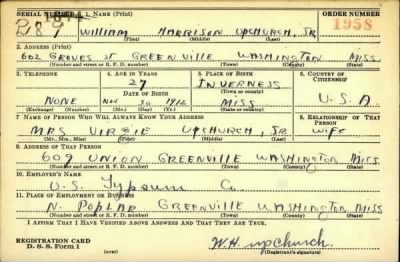 SERIAL NUMBER 1. NAME (Print) ORDER NUMBER
287 WILLIAM HARRISON UPCHURCH, JR 1958
(First) (Middle) (Last)
2. ADDRESS (Print)
602 GROVES ST GREENVILLE WASHINGTON MISS
(Number and street or R. F. D. number) (Town) (County) (State)
3. TELEPHONE 4. AGE IN YEARS 5. PLACE OF BIRTH 6. COUNTRY OF CITIZENSHIP
27 INVERNESS
DATE OF BIRTH (Town or county)
NONE NOV 30 1912 MISS U.S.A.
(Exchange) (Number) (Mo.) (Day) (Yr.) (State or country)
7. NAME OF PERSON WHO WILL ALWAYS KNOW YOUR ADDRESS 8. RELATIONSHIP OF THAT PERSON
MRS VIRGIE UPCHURCH, JR. WIFE
(Mr., Mrs., Miss) (First) (Middle) (Last)
9. ADDRESS OF THAT PERSON
609 UNION GREENVILLE WASHINGTON MISS
(Number and street or R. F. D. number) (Town) (County) (State)
10. EMPLOYER'S NAME
U.S. Gypsum Co.
11. PLACE OF EMPLOYMENT OR BUSINESS
N. POPLAR GREENVILLE WASHINGTON MISS
(Number and street or R. F. D. number) (Town) (County) (State)
I AFFIRM THAT I HAVE VERIFIED ABOVE ANSWERS AND THAT THEY ARE TRUE.
REGISTRATION CARD
D. S. S. Form 1 W.H. upchurch.
(Registrant's signature)